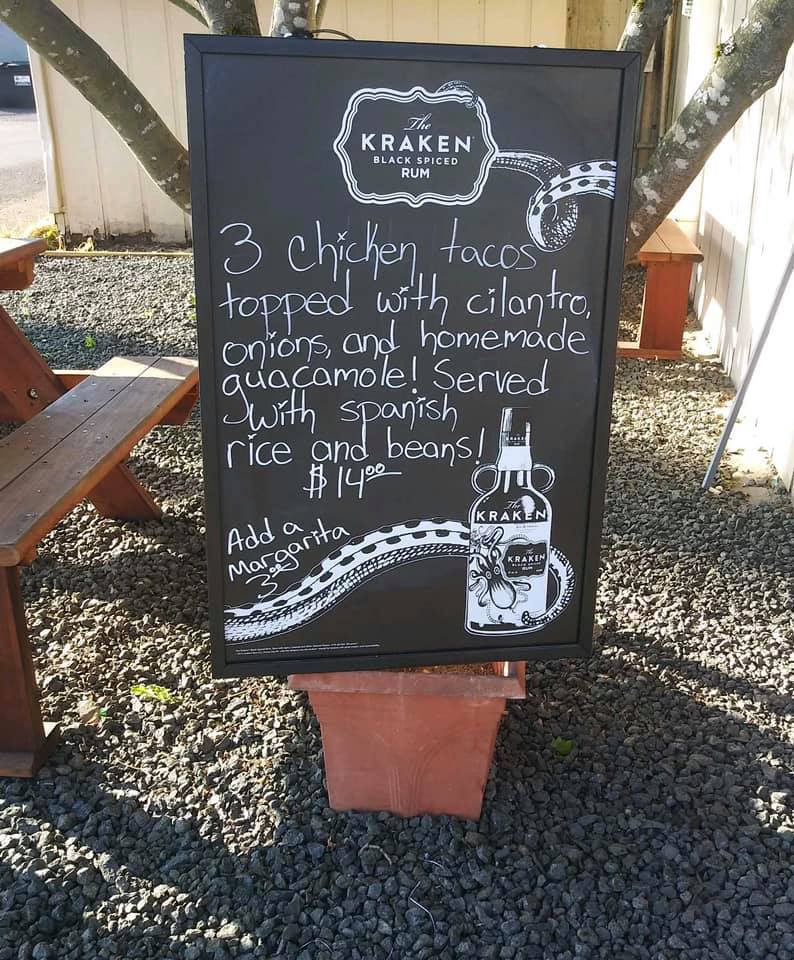 The
KRAKEN
BLACK SPICED
RUM
3 Chicken tacos
topped with cilantro,
onions, and homemade
guacamole! Served
with spanish
rice and beans!
$14.00
Add a
Margarita
3.00
KRAKEN
The
KRAKEN
The
KRAKEN
BLACK SPICED
RUM